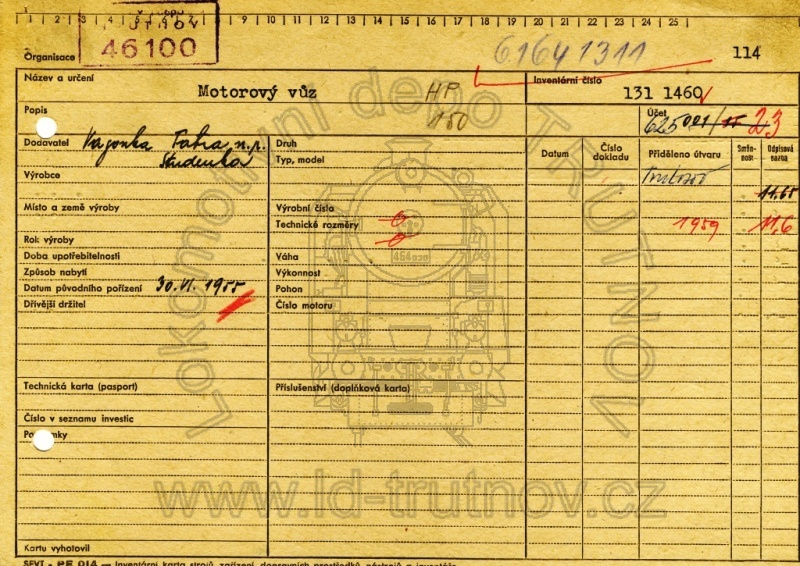 1 2 3 4 5 6 7 8 9 10 11 12 13 14 15 16 17 18 19 20 21 22 23 24 25
TRUTNOV
46100
Organisace
61641311
114
Název a určení
Motorový vůz
HP
Inventární číslo
131 1460
Popis
150
Účet
023
Dodavatel
Vagonka Tatra n.p.
Studenka
Druh
Typ, model
Datum
Číslo dokladu
Přiděleno útvaru
Směn-
nost
Odpisová
sazba
Výrobce
Trutnov
11,65
Místo a země výroby
Výrobní číslo
Technické rozměry
1959
11,6
Rok výroby
Doba upotřebitelnosti
Váha
Způsob nabytí
Výkonnost
Datum původního pořízení
30.VI. 1955
Pohon
Dřívější držitel
Číslo motoru
464 020
Technická karta (pasport)
Příslušenství (doplňková karta)
Číslo v seznamu investic
Kartu vyhotovil
SEVT - PE 014 — Inventární karta strojů, zařízení, dopravních prostředků, nástrojů a inventáře
Lokomotivní depo TRUTNOV
www.ld-trutnov.cz